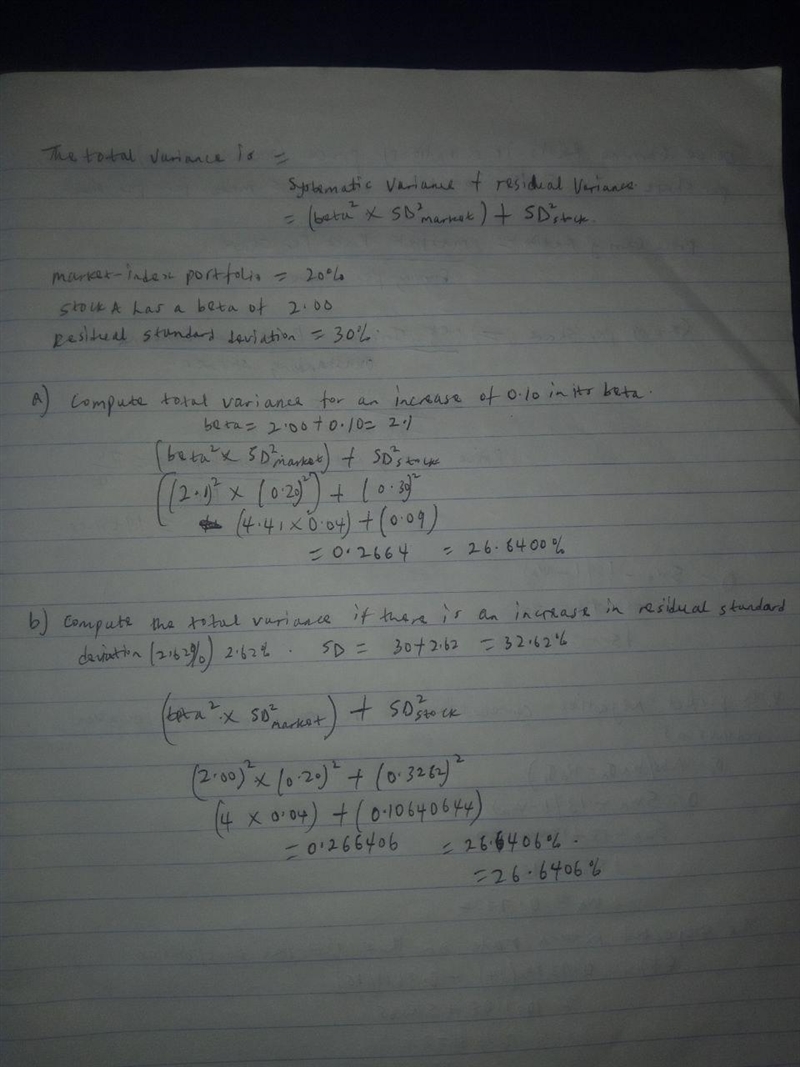 The total variance is =
Systematic variance + residual variance
= (beta² × SD²market) + SD²stock.
market-index portfolio = 20%
stock A has a beta of 2.00
Residual standard deviation = 30%.
a) Compute total variance for an increase of 0.10 in its beta.
beta = 2.00 + 0.10 = 2.1
(beta² × SD²market) + SD²stock
((2.1)² × (0.20)²) + (0.30)²
(4.41 × 0.04) + (0.09)
= 0.2664 = 26.6400%
b) Compute the total variance if there is an increase in residual standard
deviation (2.62%) 2.62%. SD = 30+2.62 = 32.62%
(beta² × SD²market) + SD²stock
(2.00)² × (0.20)² + (0.3262)²
(4 × 0.04) + (0.10640644)
= 0.266406 = 26.6406%.
= 26.6406%